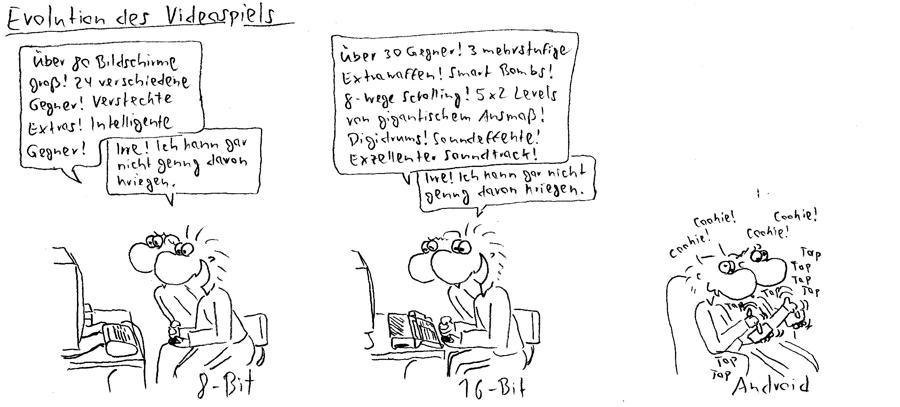 Evolution des Videospiels
Über 80 Bildschirme
groß! 24 verschiedene
Gegner! Versteckte
Extras! Intelligente
Gegner!
Irre! Ich kann gar
nicht genug davon
kriegen.
8-Bit
Über 30 Gegner! 3 mehrstufige
Extrawaffen! Smart Bombs!
8-Wege Scrolling! 5x2 Levels
von gigantischem Ausmaß!
Digidrums! Soundeffekte!
Exzellenter Soundtrack!
Irre! Ich kann gar nicht
genug davon kriegen.
16-Bit
Cookie!
Cookie!
Cookie!
Cookie!
Tap
Tap
Tap
Tap
Tap
Tap
Tap
Tap
Android